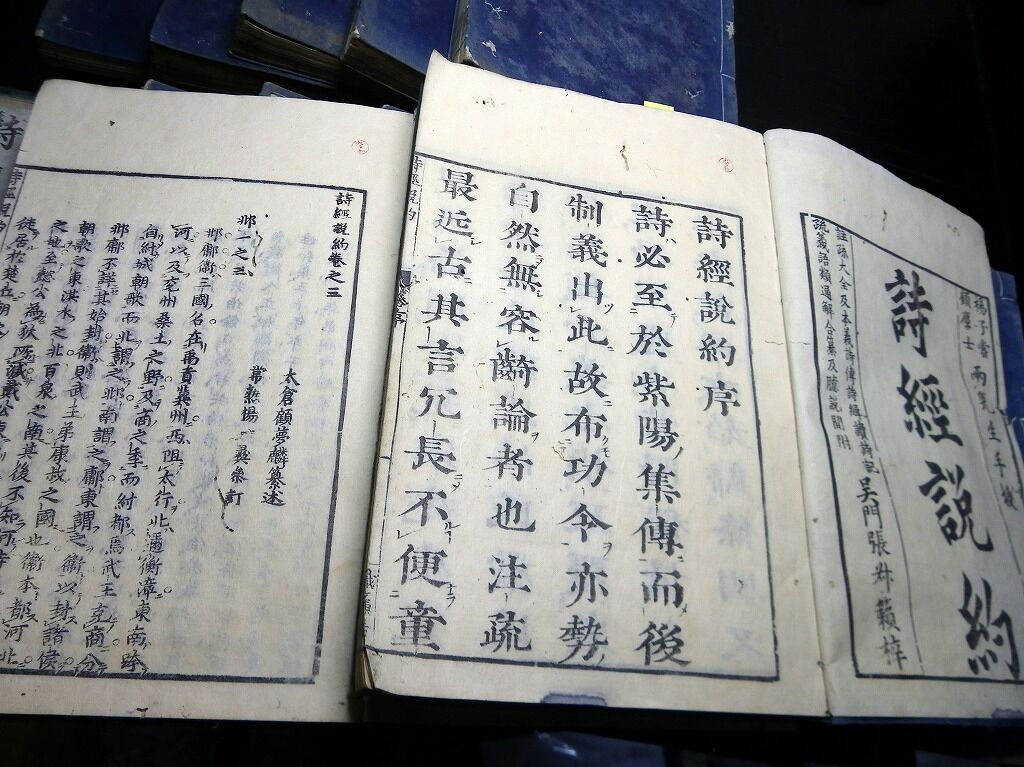 楊子常
顧麐士
兩先生手授
詩經說約
註疏大全及本義詩傳詩緝讀詩記
疏義語類通解合纂及臆說間附
吳門張叔籟梓
詩經說約序
詩必至於紫陽集傳而後
制義出此故布功令亦勢
自然無容齮論者也注疏
最近古其言冗長不便童
詩經說約
詩經說約卷之三
太倉顧夢麟纂述
常熟楊彝參訂
邶一之三
邶鄘衛三國名在禹貢冀州西阻太行北逾衡漳東南跨
河以及兗州桑土之野及商之季而紂都焉武王克商分
自紂城朝歌而北謂之邶南謂之鄘東謂之衛以封諸侯
邶鄘不詳其始封衛則武王弟康叔之國也衛本都河北
朝歌之東淇水之北百泉之南其後不知何時
之地至懿公為狄所滅戴公東
徒居於楚丘朝
詩經說約
詩